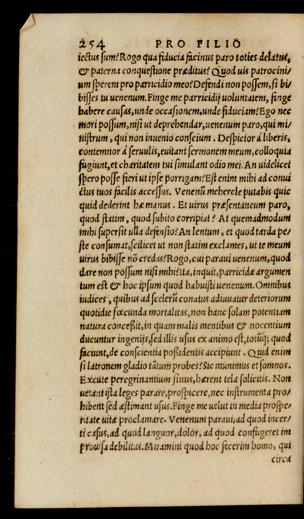 254 PRO FILIO
iectus sum? Rogo qua fiducia facinus paro toties delatus,
& paterna conquestione præditus? Quod uis patrocini/
um sperem pro parricidio meo? Defendi non possem, si bi/
bisses tu uenenum. Finge me parricidij uoluntatem, finge
habere causas, unde occasionem, unde fiduciam? Ego nec
mori possum, nisi ut deprehendar, uenenum paro, qui mi/
nistrum, qui non inuenio conscium. Despicior à liberis,
contemnor à seruulis, euitant sermonem meum, colloquia
fugiunt, et charitatem tui simulant odio mei. An uidelicet
spero posse fieri ut ipse porrigam? Est enim mihi ad conui
ctus tuos facilis accessus. Venenū mehercle putabis quic
quid dederint hæ manus. Et uirus præsentaneum paro,
quod statim, quod subito corripiat? At quemadmodum
mihi supersit ulla defensio? An lentum, et quod tarda pe/
ste consumat, scilicet ut non statim exclames, ut te meum
uirus bibisse nō credas? Rogo, cui paraui uenenum, quod
dare non possum nisi mihi? Ita, inquit, parricidæ argumen
tum est & hoc ipsum quod habuisti uenenum. Omnibus
iudices, quibus ad scelerū conatus adiuuatur deteriorum
quotidie fœcunda mortalitas, non hanc solam potentiam
natura concessit, in quam malis mentibus & nocentium
ducuntur ingenijs, sed illis usus ex animo est, totūq; quod
faciunt, de conscientia possidentis accipiunt. Quid enim
si latronem gladio tālum probes? Sic munimus et somnos.
Excute peregrinantium sinus, hærent tela solicitis. Non
uetant ista leges parare, prospicere, nec instrumenta pro/
hibent sed æstimant usus. Finge me uelut in media prospe/
ritate uitæ proclamare. Venenum paraui, ad quod incer/
ti casus, ad quod languor, dolor, ad quod confugeret im
prouisa debilitas. Miramini quod hoc fecerim homo, qui
circa